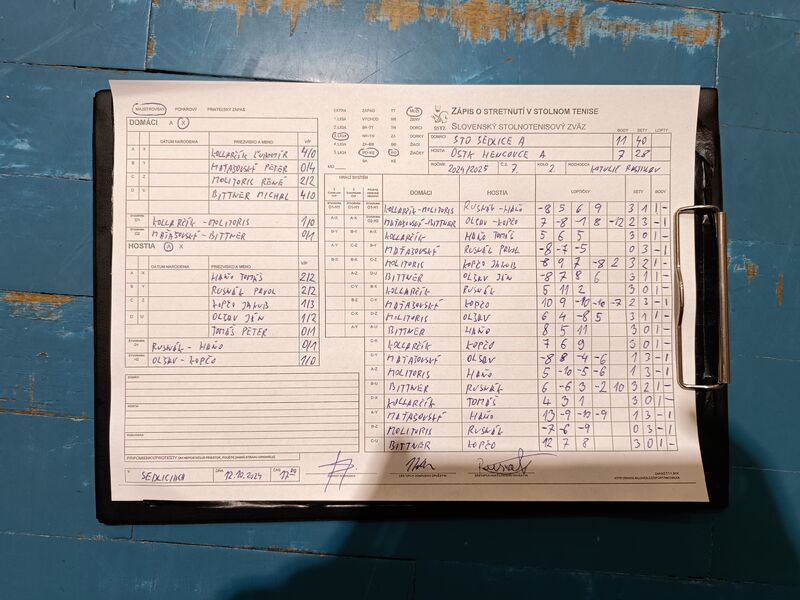 MAJSTROVSKÝ POHÁROVÝ PRIATEĽSKÝ ZÁPAS
DOMÁCI A X
DÁTUM NARODENIA PRIEZVISKO A MENO V/P
A X KOLLARČÍK ĽUBOMÍR 4/0
B Y MATAŠOVSKÝ PETER 0/4
C Z MOLITORIS RENÉ 2/2
D U BITTNER MICHAL 4/0
ŠTVORHRA D1 KOLLARČÍK - MOLITORIS 1/0
ŠTVORHRA D2 MATAŠOVSKÝ - BITTNER 0/1
HOSTIA A X
DÁTUM NARODENIA PRIEZVISKO A MENO V/P
A X HAŇO TOMÁŠ 2/2
B Y RUSNÁK PAVOL 2/2
C Z KOPČO JAKUB 1/3
D U OLŠAV JÁN 1/2
TOMÁŠ PETER 0/1
ŠTVORHRA H1 RUSNÁK - HAŇO 0/1
OLŠAV - KOPČO 1/0
DOMÁCI
HOSTIA
PRIPOMIENKY/PROTESTY
SEDLICIACH DŇA 12.10.2024 ČAS 17
EXTRA ZÁPAD TT MUŽI
1. LIGA VÝCHOD BB ŽENY
2. LIGA BA-TT TN DORCI
3. LIGA NR-TN ZA DORKY
4. LIGA ZA-BB
5. LIGA PO-KE PO ŽIAČKY
BA KE
MO
SSTZ
ZÁPIS O STRETNUTÍ V STOLNOM TENISE
SLOVENSKÝ STOLNOTENISOVÝ ZVÄZ
BODY SETY LOPTY
DOMÁCI STO SEDLICE A 11 40
HOSTIA OŠTK HENCOVCE A 7 28
ROČNÍK 2024/2025 Č.Z. 7. KOLO 2. ROZHODCA KATULIČ RASTISLAV
HRACÍ SYSTÉM
DOMÁCI HOSTIA LOPTIČKY SETY BODY
KOLLARČÍK-MOLITORIS RUSNÁK-HAŇO -8 5 6 9 3 1 1 -
MATAŠOVSKÝ-BITTNER OLŠAV-KOPČO 7 -8 -1 8 -12 2 3 - 1
KOLLARČÍK HAŇO TOMÁŠ 5 6 5 3 0 1 -
MATAŠOVSKÝ RUSNÁK PAVOL -8 -7 -5 0 3 - 1
MOLITORIS KOPČO JAKUB 8 9 7 -8 2 3 2 1 -
BITTNER OLŠAV JÁN -8 7 8 6 3 1 1 -
KOLLARČÍK RUSNÁK 5 11 2 3 0 1 -
MATAŠOVSKÝ KOPČO 10 9 -10 -10 -7 2 3 - 1
MOLITORIS OLŠAV 6 4 -8 5 3 1 1 -
BITTNER HAŇO 8 5 11 3 0 1 -
KOLLARČÍK KOPČO 7 6 9 3 0 1 -
MATAŠOVSKÝ OLŠAV -8 8 -4 -6 1 3 - 1
MOLITORIS HAŇO 5 -10 -5 -6 1 3 - 1
BITTNER RUSNÁK 6 -6 3 -2 10 3 2 1 -
KOLLARČÍK TOMÁŠ 4 3 1 3 0 1 -
MATAŠOVSKÝ HAŇO 13 -9 -10 -9 1 3 - 1
MOLITORIS RUSNÁK -7 -6 -9 0 3 - 1
BITTNER KOPČO 12 7 8 3 0 1 -